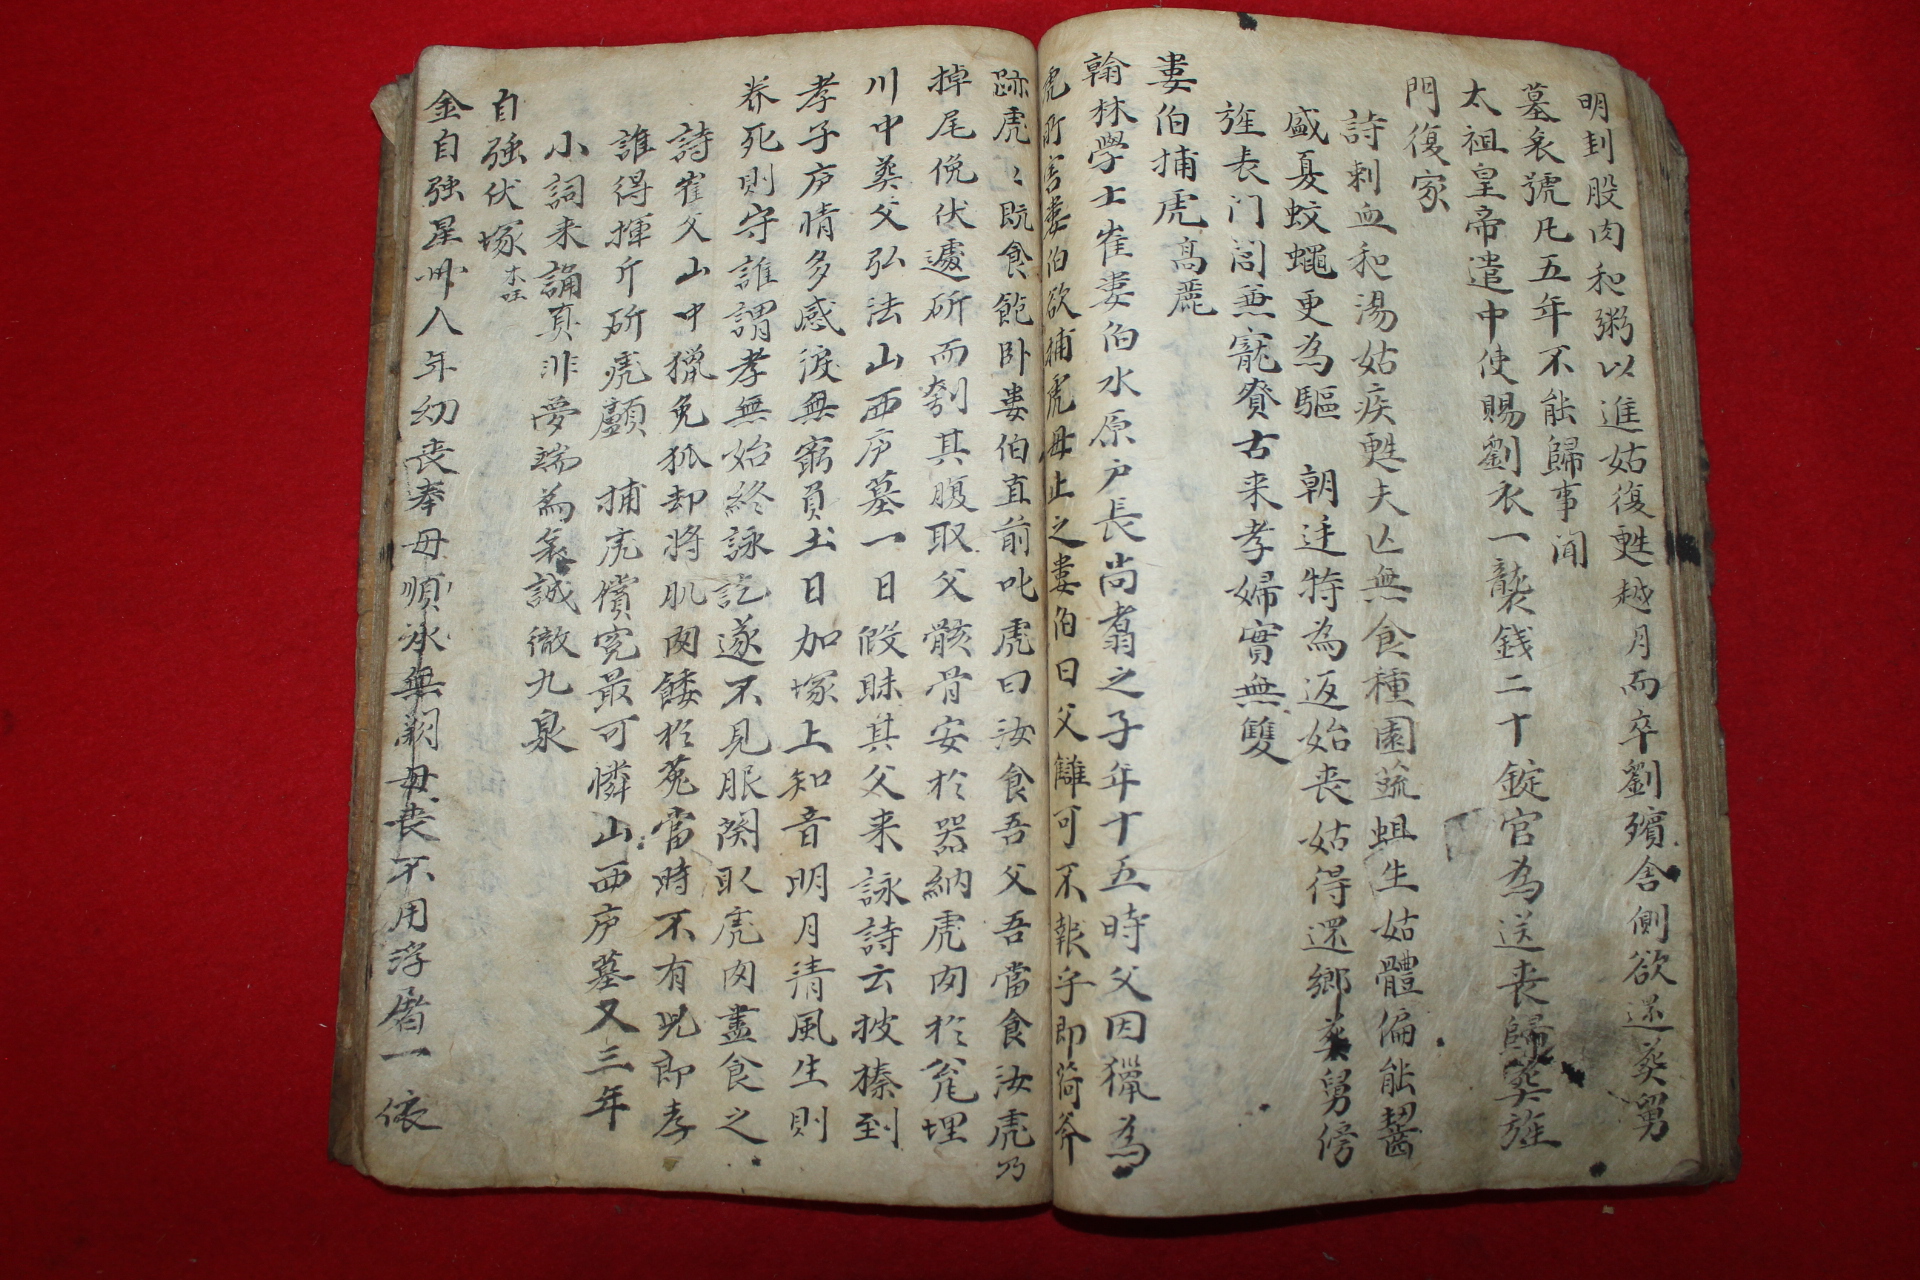 明刲股肉和粥以進姑復甦越月而卒劉殯舍側欲還葬舅
墓哀號凡五年不能歸事聞
太祖皇帝遣中使賜劉衣一襲錢二十錠官為送丧歸葬旌
門復家
詩刺血和湯姑疾甦夫亡無食種園蔬蛆生姑體偏能齧
盛夏蚊蠅更為驅 朝廷特為返始丧姑得還鄉葬舅傍
旌表门閭兼寵賚古来孝婦實無雙
婁伯捕虎高麗
翰林學士崔婁伯水原户長尚翥之子年十五時父因獵為
虎所害婁伯欲捕虎母止之婁伯曰父讎可不報乎即荷斧
跡虎〻既食飽卧婁伯直前叱虎曰汝食吾父吾當食汝虎乃
掉尾俛伏遽斫而刳其腹取父骸骨安於器納虎肉於瓮埋
川中葬父弘法山西庐墓一日假眛其父来詠詩云披榛到
孝子庐情多感淚無窮負土日加塚上知音明月清風生則
养死則守誰謂孝無始終詠訖遂不見服闋取虎肉盡食之
詩崔父山中獵兔狐却将肌肉餧於菟當時不有兒郎孝
誰得揮斤斫虎顱 捕虎償寃最可憐山西庐墓又三年
小詞来誦真非夢端為哀誠徹九泉
自强伏塚本国
金自强星州人年幼丧奉母順承無闕母丧不用浮屠一依